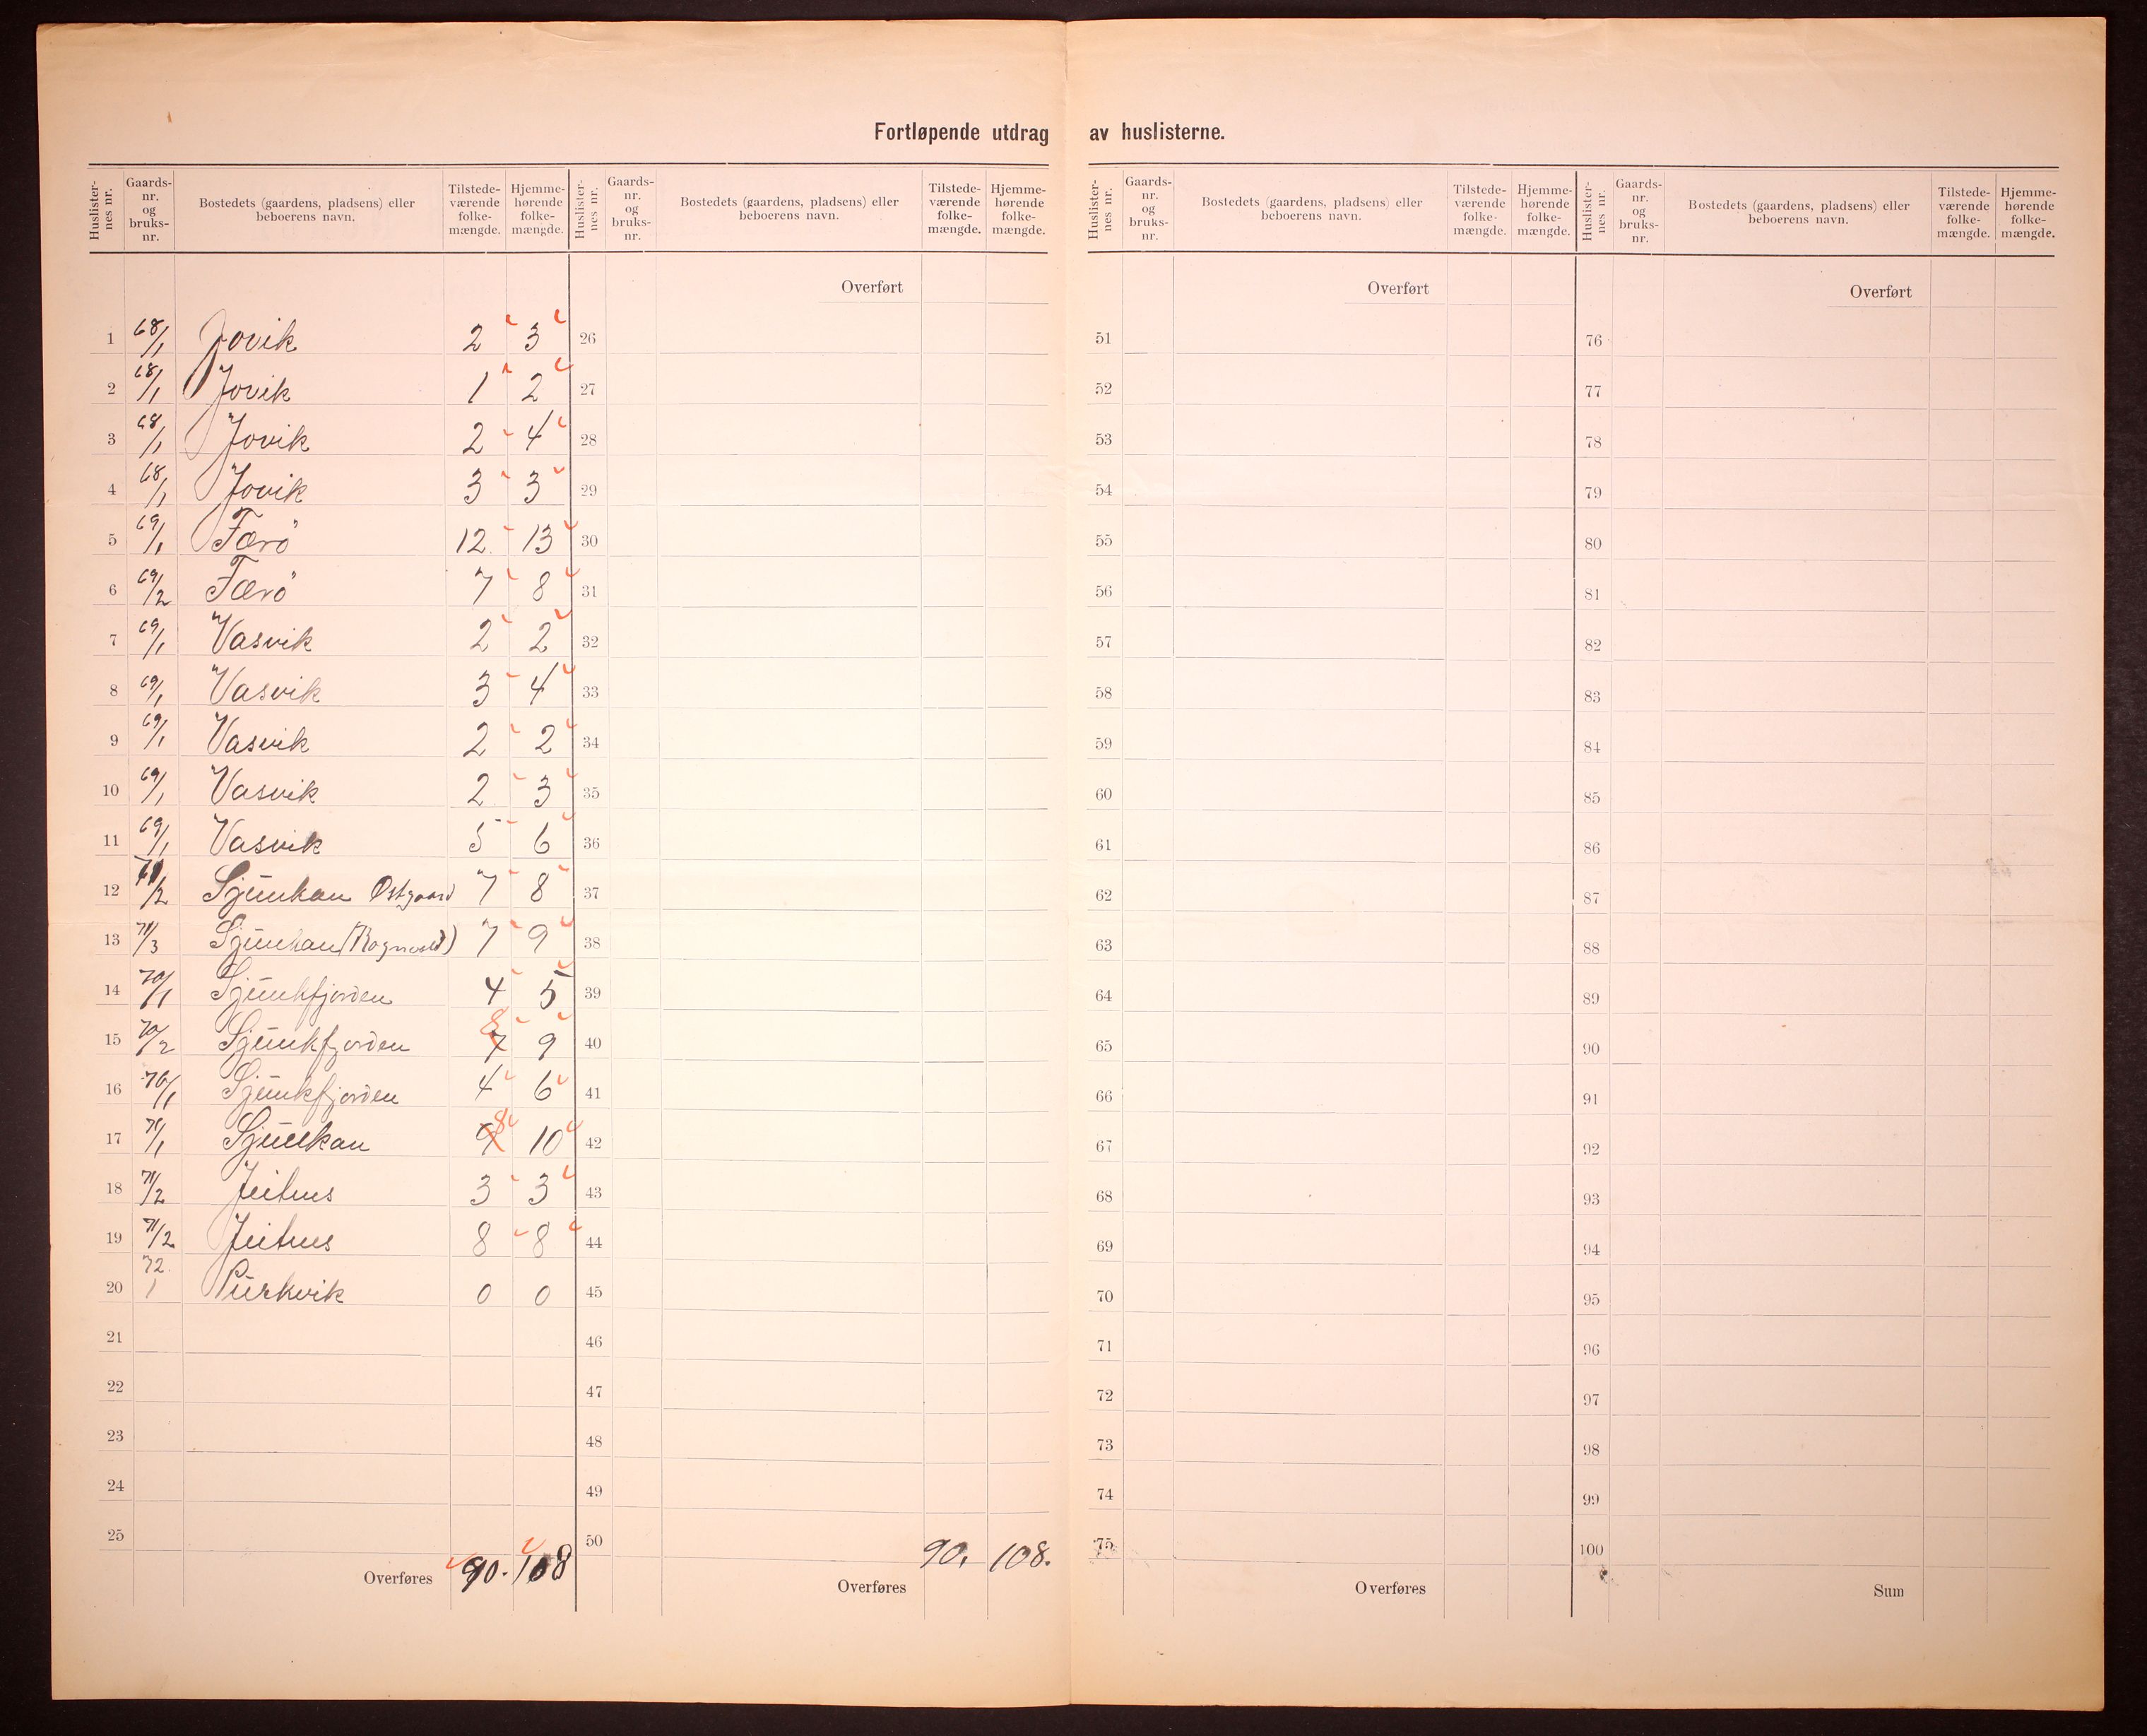 Fortløpende utdrag av huslisterne.
Huslister-nes nr. Gaards-nr. og bruks-nr. Bostedets (gaardens, pladsens) eller beboerens navn. Tilstede-værende folke-mængde. Hjemme-hørende folke-mængde.
1 68/1 Jovik 2 3
2 68/1 Jovik 1 2
3 68/1 Jovik 2 4
4 68/1 Jovik 3 3
5 69/1 Færö 12 13
6 69/2 Færö 7 8
7 69/1 Vasvik 2 2
8 69/1 Vasvik 3 4
9 69/1 Vasvik 2 2
10 69/1 Vasvik 2 3
11 69/1 Vasvik 5 6
12 71/2 Sjunkan Østgaard 7 8
13 71/3 Sjunkan (Rognvold) 7 9
14 70/1 Sjunkfjorden 4 5
15 70/2 Sjunkfjorden 7 8 9
16 70/1 Sjunkfjorden 4 6
17 71/1 Sjunkan 9 8 10
18 71/2 Jeithus 3 3
19 71/2 Jeithus 8 8
20 72. 1 Purkvik 0 0
21
22
23
24
25
Overføres 90. 108
Huslister-nes nr. Gaards-nr. og bruks-nr. Bostedets (gaardens, pladsens) eller beboerens navn. Tilstede-værende folke-mængde. Hjemme-hørende folke-mængde.
Overført
26
27
28
29
30
31
32
33
34
35
36
37
38
39
40
41
42
43
44
45
46
47
48
49
50
90. 108.
Overføres
Huslister-nes nr. Gaards-nr. og bruks-nr. Bostedets (gaardens, pladsens) eller beboerens navn. Tilstede-værende folke-mængde. Hjemme-hørende folke-mængde.
Overført
51
52
53
54
55
56
57
58
59
60
61
62
63
64
65
66
67
68
69
70
71
72
73
74
75
Overføres
Huslister-nes nr. Gaards-nr. og bruks-nr. Bostedets (gaardens, pladsens) eller beboerens navn. Tilstede-værende folke-mængde. Hjemme-hørende folke-mængde.
Overført
76
77
78
79
80
81
82
83
84
85
86
87
88
89
90
91
92
93
94
95
96
97
98
99
100
Sum